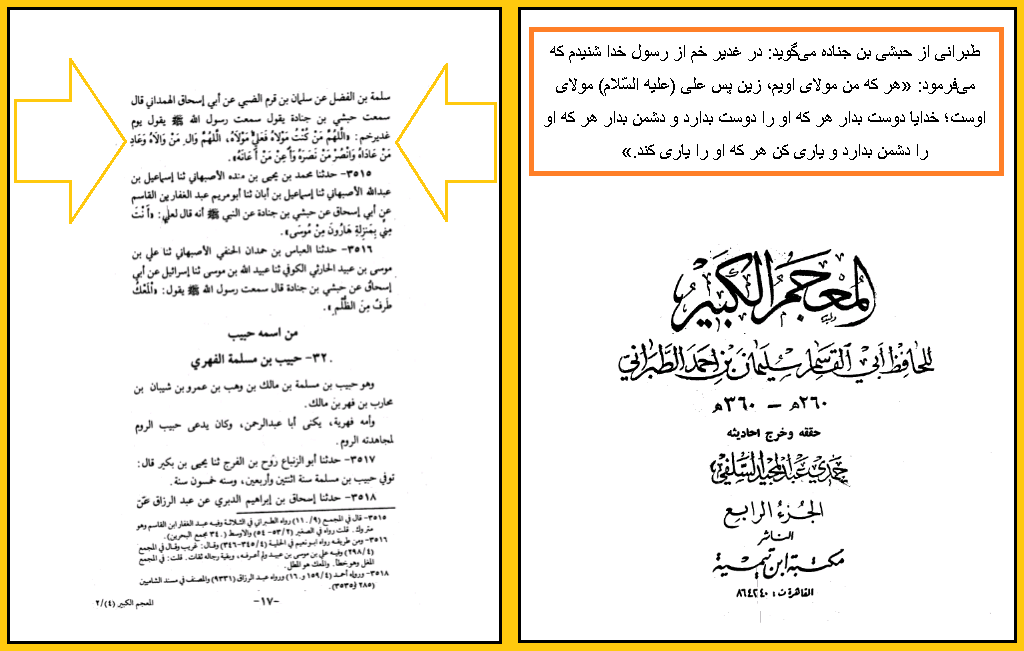 طبرانی از حبشی بن جناده می‌گوید: در غدیر خم از رسول خدا شنیدم که
می‌فرمود: «هر که من مولای اویم، زین پس علی (علیه السّلام) مولای
اوست؛ خدایا دوست بدار هر که او را دوست بدارد و دشمن بدار هر که او
را دشمن بدارد و یاری کن هر که او را یاری کند.»
المعجم الكبير
للحافظ أبي القاسم سليمان بن أحمد الطبراني
٢٦٠هـ – ٣٦٠هـ
حققه وخرج احاديثه
حمدي عبد المجيد السلفي
الجزء الرابع
الناشر
مكتبة ابن تيمية
القاهرة ت: ٨٦٤٢٤٠
سلمة بن الفضل عن سلمان بن قرم الضبي عن أبي إسحاق الهمداني قال
سمعت حبشي بن جنادة يقول سمعت رسول الله ﷺ يقول يوم
غديرخم: «اللَّهُمَّ مَنْ كُنْتُ مَوْلاَهُ فَعَلِيٌّ مَوْلاَهُ، اللَّهُمَّ وَالِ مَنْ وَالَاهُ وَعَادِ
مَنْ عَادَاهُ وَانْصُرْ مَنْ نَصَرَهُ وَأَعِنْ مَنْ أَعَانَهُ».
٣٥١٥- حدثنا محمد بن يحيى بن منده الأصبهاني ثنا إسماعيل بن
عبدالله الأصبهاني ثنا إسماعيل بن أبان ثنا أبومريم عبد الغفار بن القاسم
عن أبي إسحاق عن حبشي بن جنادة عن النبي ﷺ أنه قال لعلي: «أَنْتَ
مِنِّي بِمَنْزِلَةِ هَارُونَ مِنْ مُوسَى».
٣٥١٦- حدثنا العباس بن حمدان الحنفي الأصبهاني ثنا علي بن
موسى بن عبيد الحارثي الكوفي ثنا عبيد الله بن موسى ثنا إسرائيل عن أبي
إسحاق عن حبشي بن جنادة قال سمعت رسول الله ﷺ يقول: «اَلْمَعْكُ
طَرَفٌ مِنَ الظُّلْمِ».
من اسمه حبيب
٣٢٠- حبيب بن مسلمة الفهري
وهو حبيب بن مسلمة بن مالك بن وهب بن عمرو بن شيبان بن
محارب بن فهر بن مالك.
وأمه فهرية، يكنى أبا عبدالرحمن، وكان يدعى حبيب الروم
لمجاهدته الروم.
٣٥١٧- حدثنا أبو الزنباع روح بن الفرج ثنا يحيى بن بكير قال:
توفي حبيب بن مسلمة سنة اثنتين وأربعين، وسنه خمسون سنة.
٣٥١٨- حدثنا إسحاق بن إبراهيم الدبري عن عبد الرزاق عن
٣٥١٥- قال في المجمع (٩/١١٠) رواه الطبراني في الثلاثة وفيه عبد الغفار ابن القاسم وهو
متروك. قلت رواه في الصغير (٢/٥٣-٥٤) والأوسط (٣٤٠ مجمع البحرين).
٣٥١٦- ومن طريقه رواه ابونعيم في الحلية (٤/٣٤٥-٣٤٦) وقال: غريب وقال في المجمع
(٤/٢٩٨) وفيه علي بن موسى بن عبيد ولم أعرفه، وبقية رجاله ثقات. قلت: في المجمع
المغل وهو خطأ. والمعك هو المطل.
٣٥١٨- ورواه أحمد (٤/١٥٩ و١٦٠) ورواه عبد الرزاق (٩٣٣١) والمصنف في مسند الشاميين
(٢٨٥ و٣٥٣٥)
-١٧-
المعجم الكبير (٤)/٢